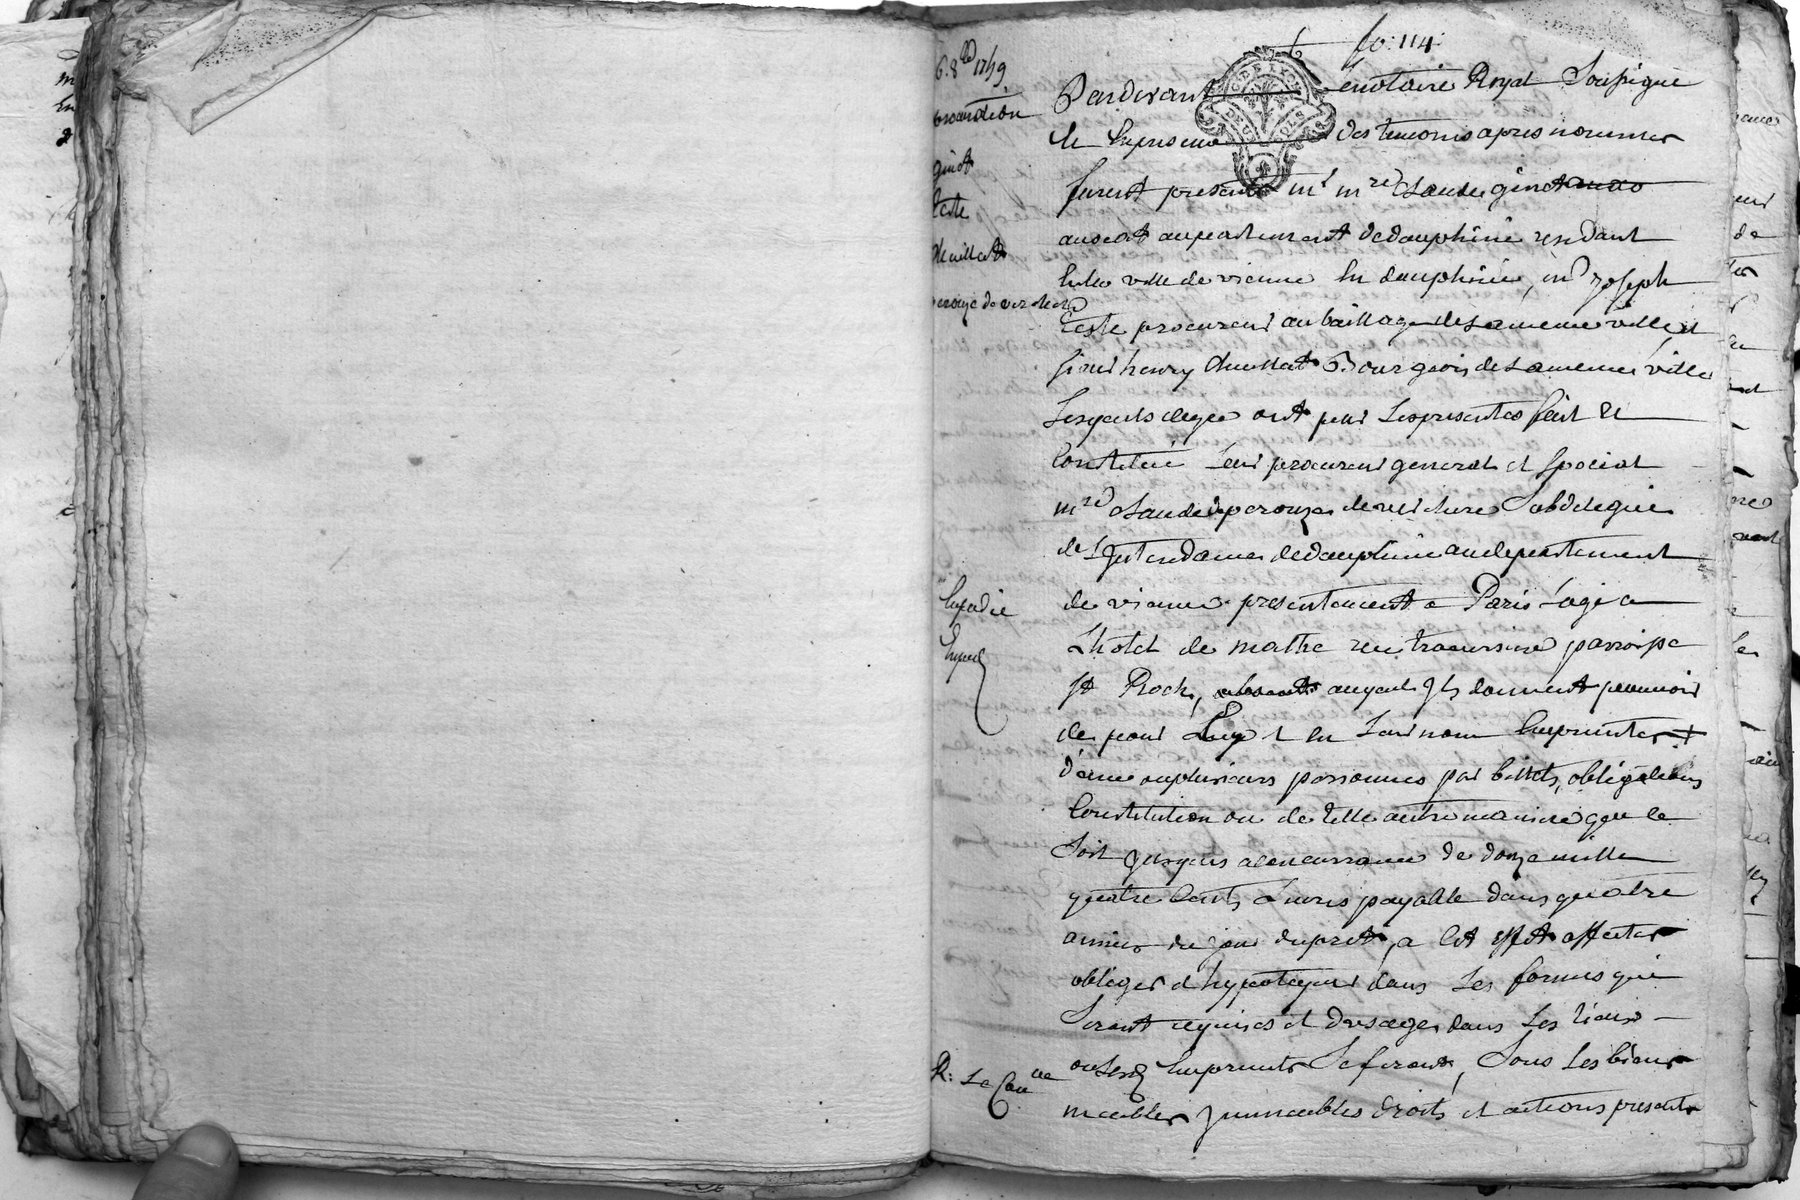 fo: 114.
6. 8bre 1749
procuration
ginet
Teste
peronze de verclere
Expedie
R: Le Con
Pardevant Le notaire Royal Soussigné
et En presence des temoins apres nommes
furent presents mr mre Claude ginet
avocat au parlement de dauphiné residant
en la ville de vienne En dauphiné, me Joseph
Teste procureur au baillage de la meme ville et
sieur henry Bourgeois de la meme ville
Lesquels de gre ont par Les presentes fait et
Constitué Leur procureur general et special
mre Claude peronze de verclere Subdelegué
de L'Intendance de dauphiné au departement
de vienne presentement a Paris Logé a
L'hotel de malthe rue traversiere parroisse
St Roch, absent auquel Ils donnent pouvoir
de pour Luy et En Leur nom Emprunter
d'une ou plusieurs personnes par billets, obligations
Constitution ou de telle autre maniere que ce
Soit Jusques a concurrance de douze mille
quatre Cents Livres payable dans quatre
années du jour du prest, a Cet effet affecter
obliger et hypotequer dans Les formes qui
Seront requises et d'usage dans Les Lieux
ou Lesd Emprunts Se feront, Tous Les biens
meubles Immeubles droits et actions presents